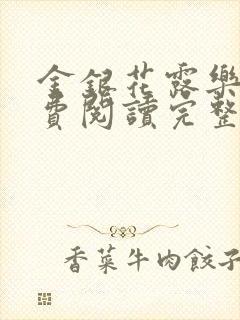 金銀花露樂
費閱讀完整
香菜牛肉餃子